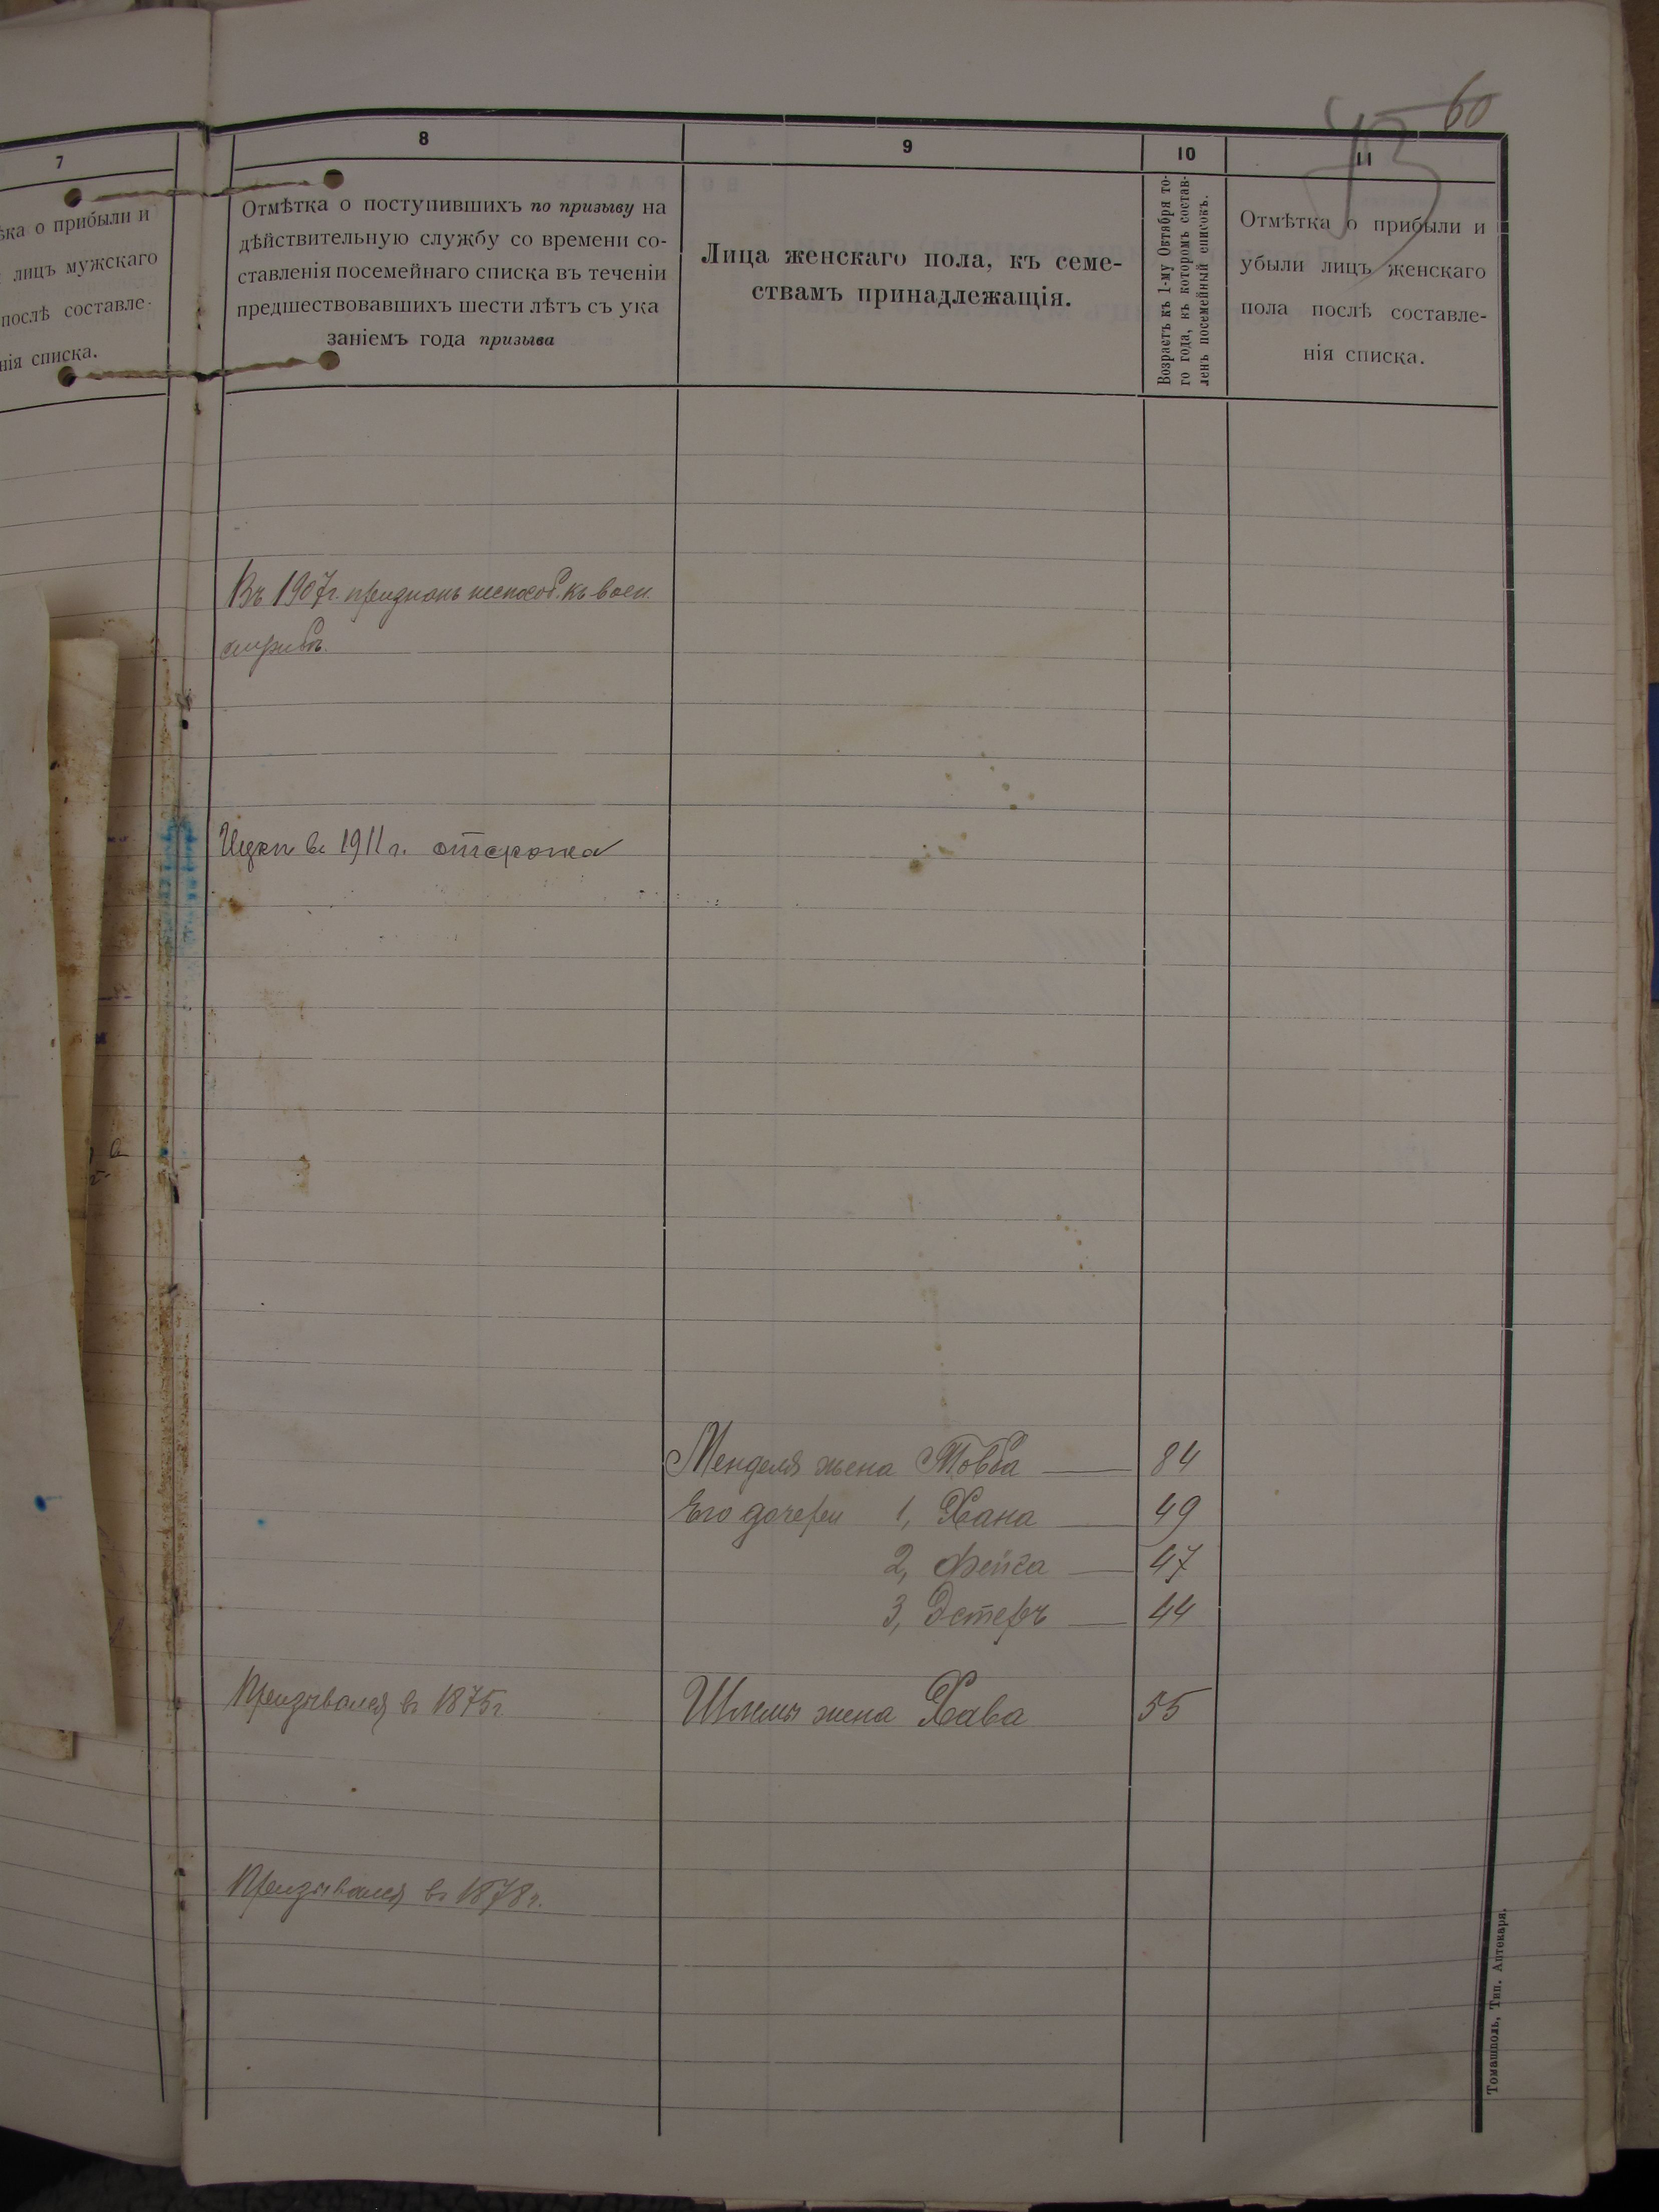 60
7
ѣка о прибыли и
лицъ мужскаго
послѣ составле-
нія списка.
8
Отмѣтка о поступившихъ по призыву на
дѣйствительную службу со времени со-
ставленія посемейнаго списка въ теченіи
предшествовавшихъ шести лѣтъ съ ука
заніемъ года призыва
9
Лица женскаго пола, къ семе-
ствамъ принадлежащія.
10
Возрастъ къ 1-му Октября то-
го года, въ которомъ состав-
ленъ посемейный списокъ.
11
Отмѣтка о прибыли и
убыли лицъ женскаго
пола послѣ составле-
нія списка.
Въ 1907г. признанъ неспособ. къ воен.
службѣ.
Ицко въ 1911 г. отсрочка
Менделя жена Товба 84
Его дочери 1, Хана 49
2, Фейга 47
3, Эстеръ 44
Призывался въ 1875г.
Шлемы жена Хава 55
Призывался въ 1878г.
Томашполь, Тип. Аптекаря.